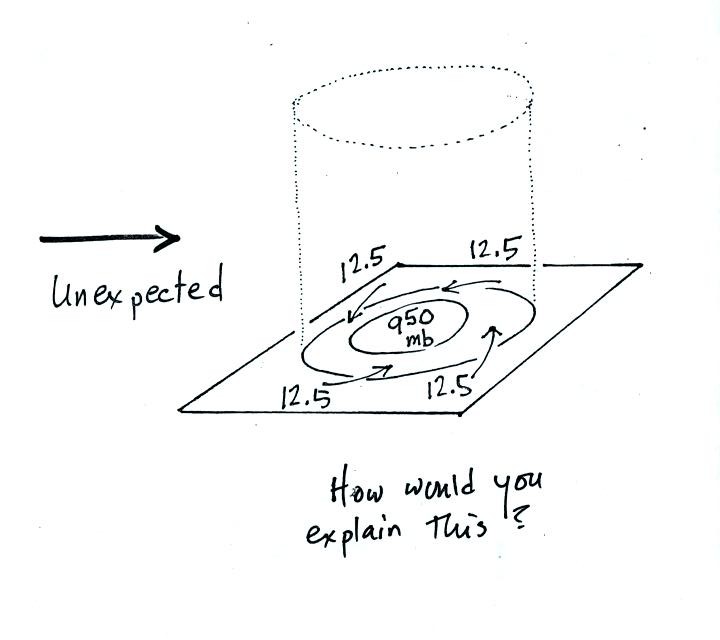 12.5 12.5
Unexpected
950
mb
12.5 12.5
How would you
explain this?